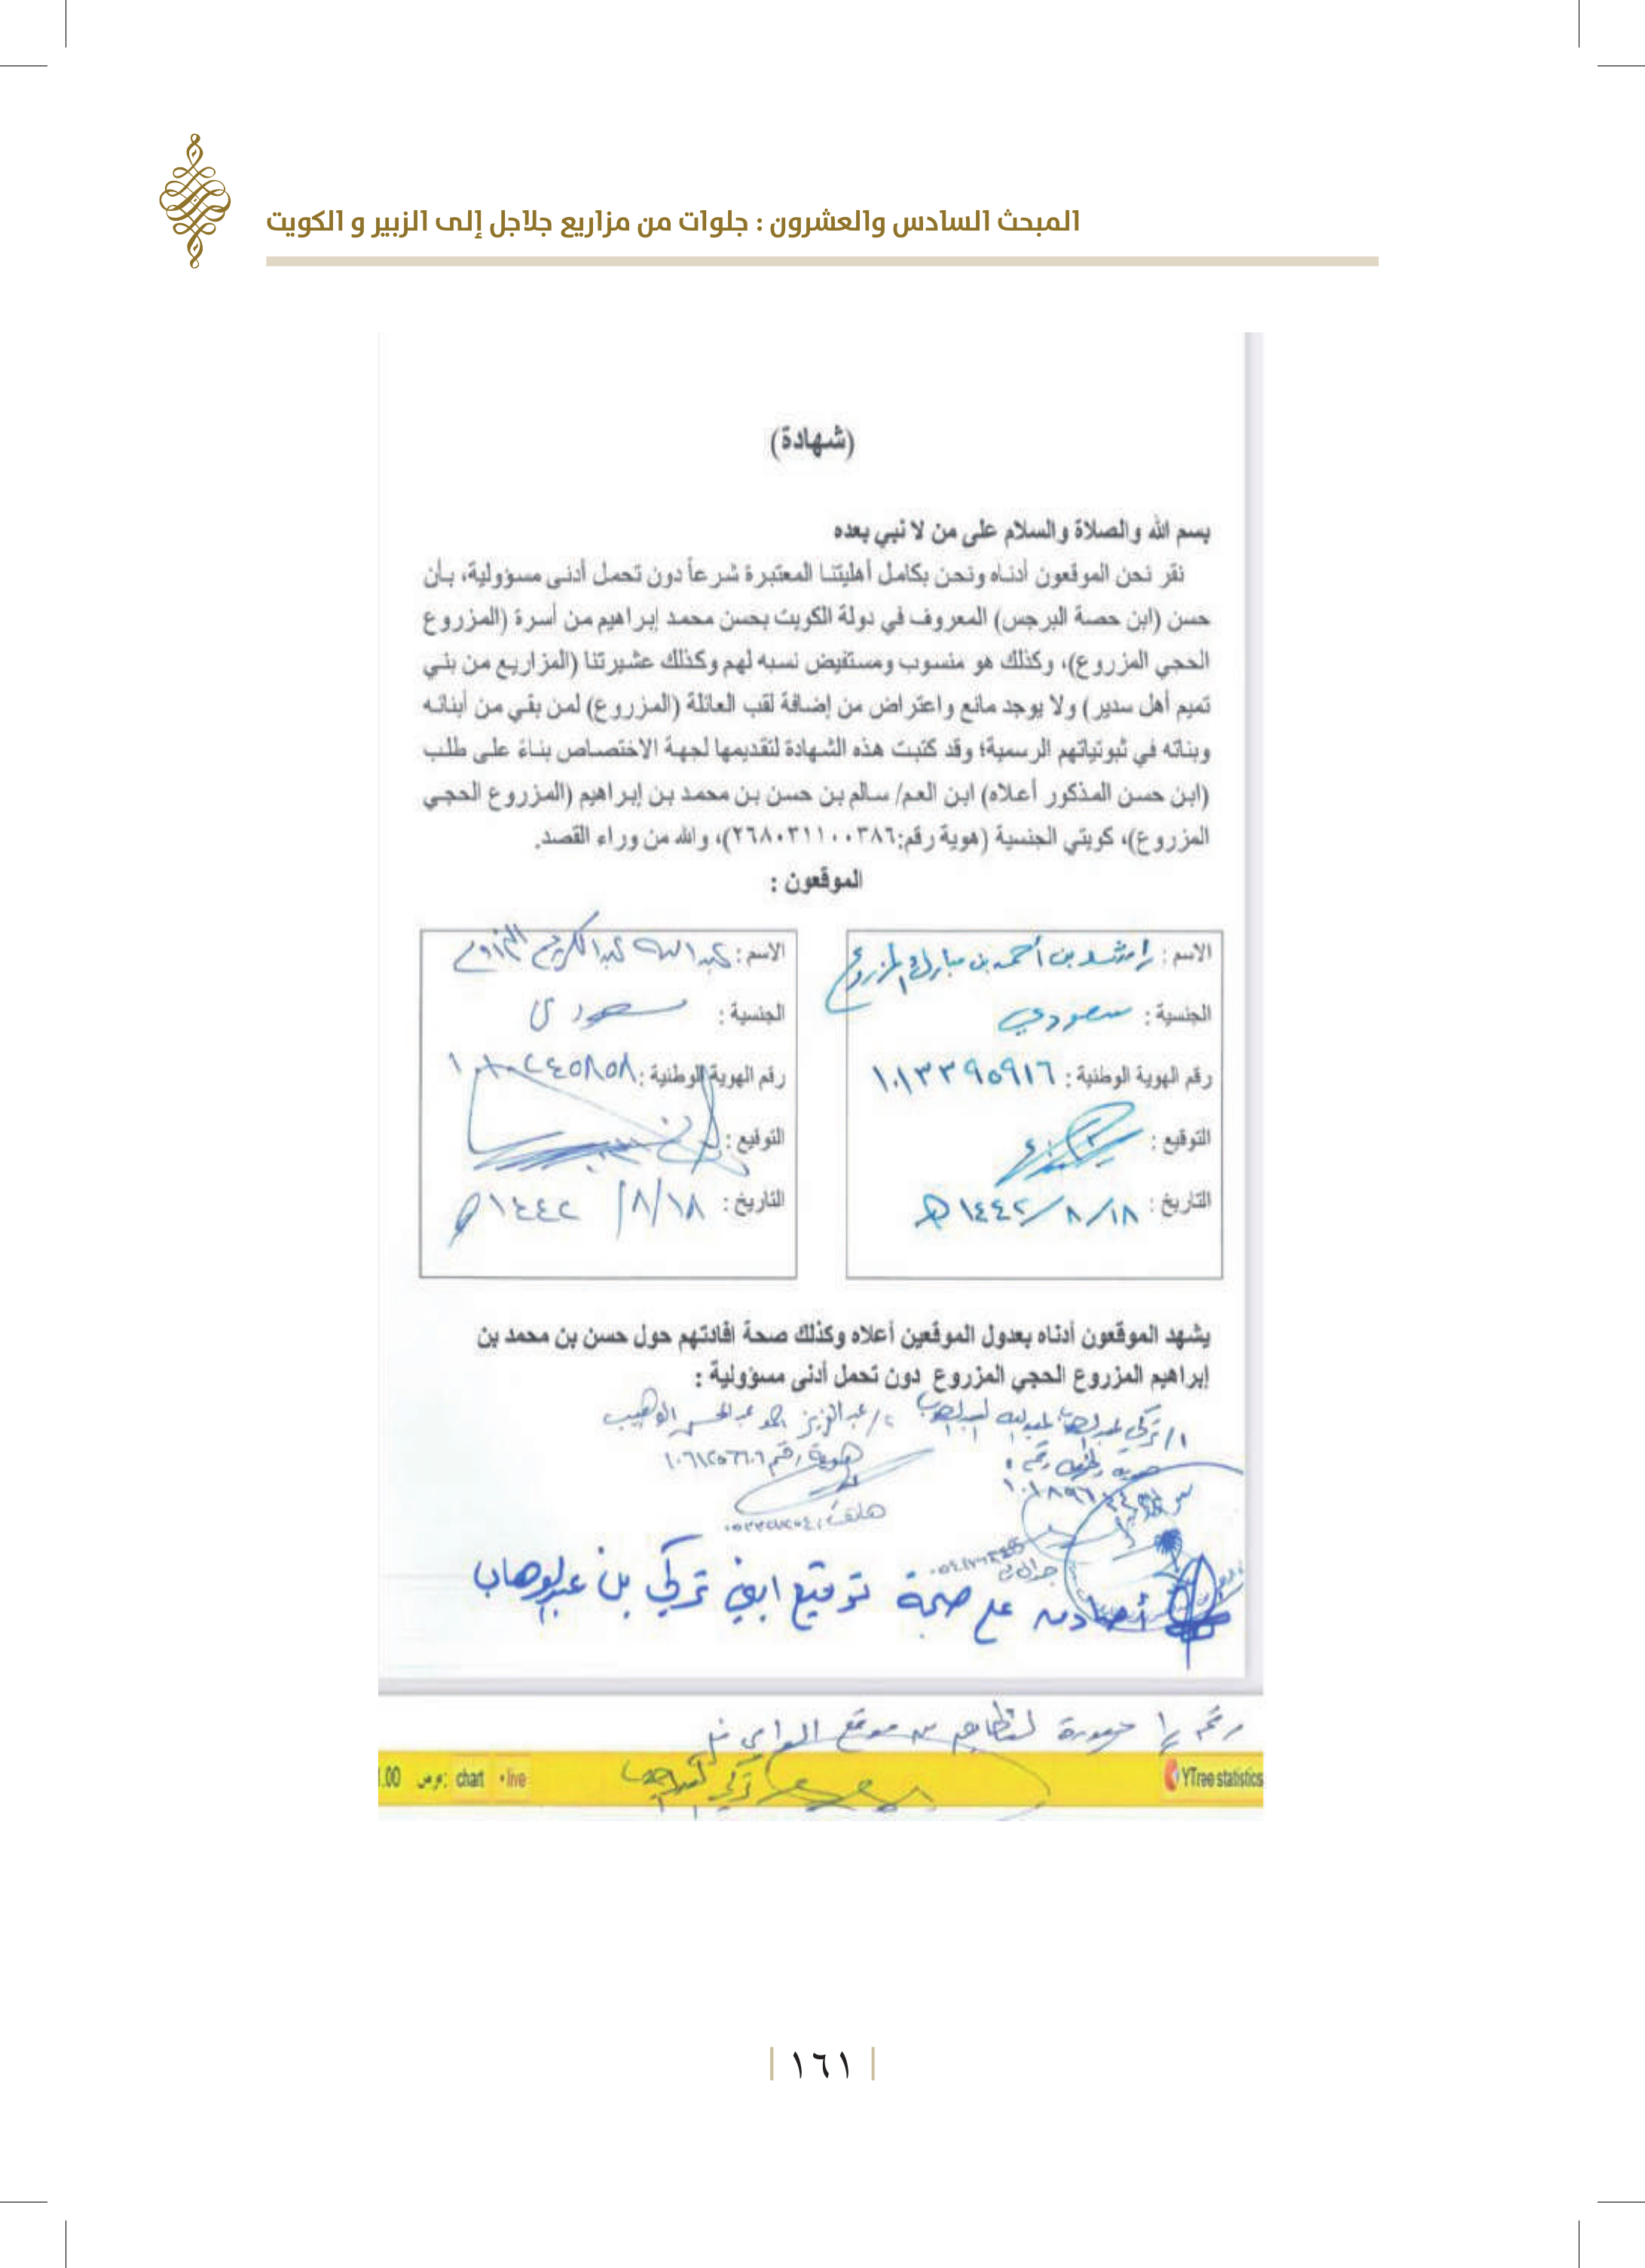 المبحث السادس والعشرون : جلوات من مزاريع جلاجل إلى الزبير و الكويت
(شهادة)
بسم الله والصلاة والسلام على من لا نبي بعده
نقر نحن الموقعون أدناه ونحن بكامل أهليتنا المعتبرة شرعاً دون تحمل أدنى مسؤولية، بأن
حسن (ابن حصة البرجس) المعروف في دولة الكويت بحسن محمد إبراهيم من أسرة (المزروع
الحجي المزروع)، وكذلك هو منسوب ومستفيض نسبه لهم وكذلك عشيرتنا (المزاريع من بني
تميم أهل سدير) ولا يوجد مانع واعتراض من إضافة لقب العائلة (المزروع) لمن بقي من أبنائه
وبناته في ثبوتياتهم الرسمية؛ وقد كتبت هذه الشهادة لتقديمها لجهة الاختصاص بناءً على طلب
(ابن حسن المذكور أعلاه) ابن العم/ سالم بن حسن بن محمد بن إبراهيم (المزروع الحجي
المزروع)، كويتي الجنسية (هوية رقم:٢٦٨٠٣١١٠٠٣٨٦)، والله من وراء القصد.
الموقعون :
الاسم : راشد بن أحمد بن مبارك المزروع
الجنسية : سعودي
رقم الهوية الوطنية : ١٠١٣٣٩٥٩١٦
التوقيع :
التاريخ : ١٤٤٢/٨/١٨ هـ
الاسم : عبدالله عبدالكريم المزروع
الجنسية : سعودي
رقم الهوية الوطنية :
التوقيع :
التاريخ : ١٤٤٢/٨/١٨ هـ
يشهد الموقعون أدناه بعدول الموقعين أعلاه وكذلك صحة افادتهم حول حسن بن محمد بن
إبراهيم المزروع الحجي المزروع دون تحمل أدنى مسؤولية :
١/ تركي عبدالوهاب عبدالله
٢/ عبدالعزيز عبدالمحسن الوهيب
هوية رقم
هاتف
أصادق على صحة توقيع ابني تركي بن عبدالوهاب
رقم ١ من موقع الواي
YTree statistics
live • chart عرض: 1.00
تركي
١٦١